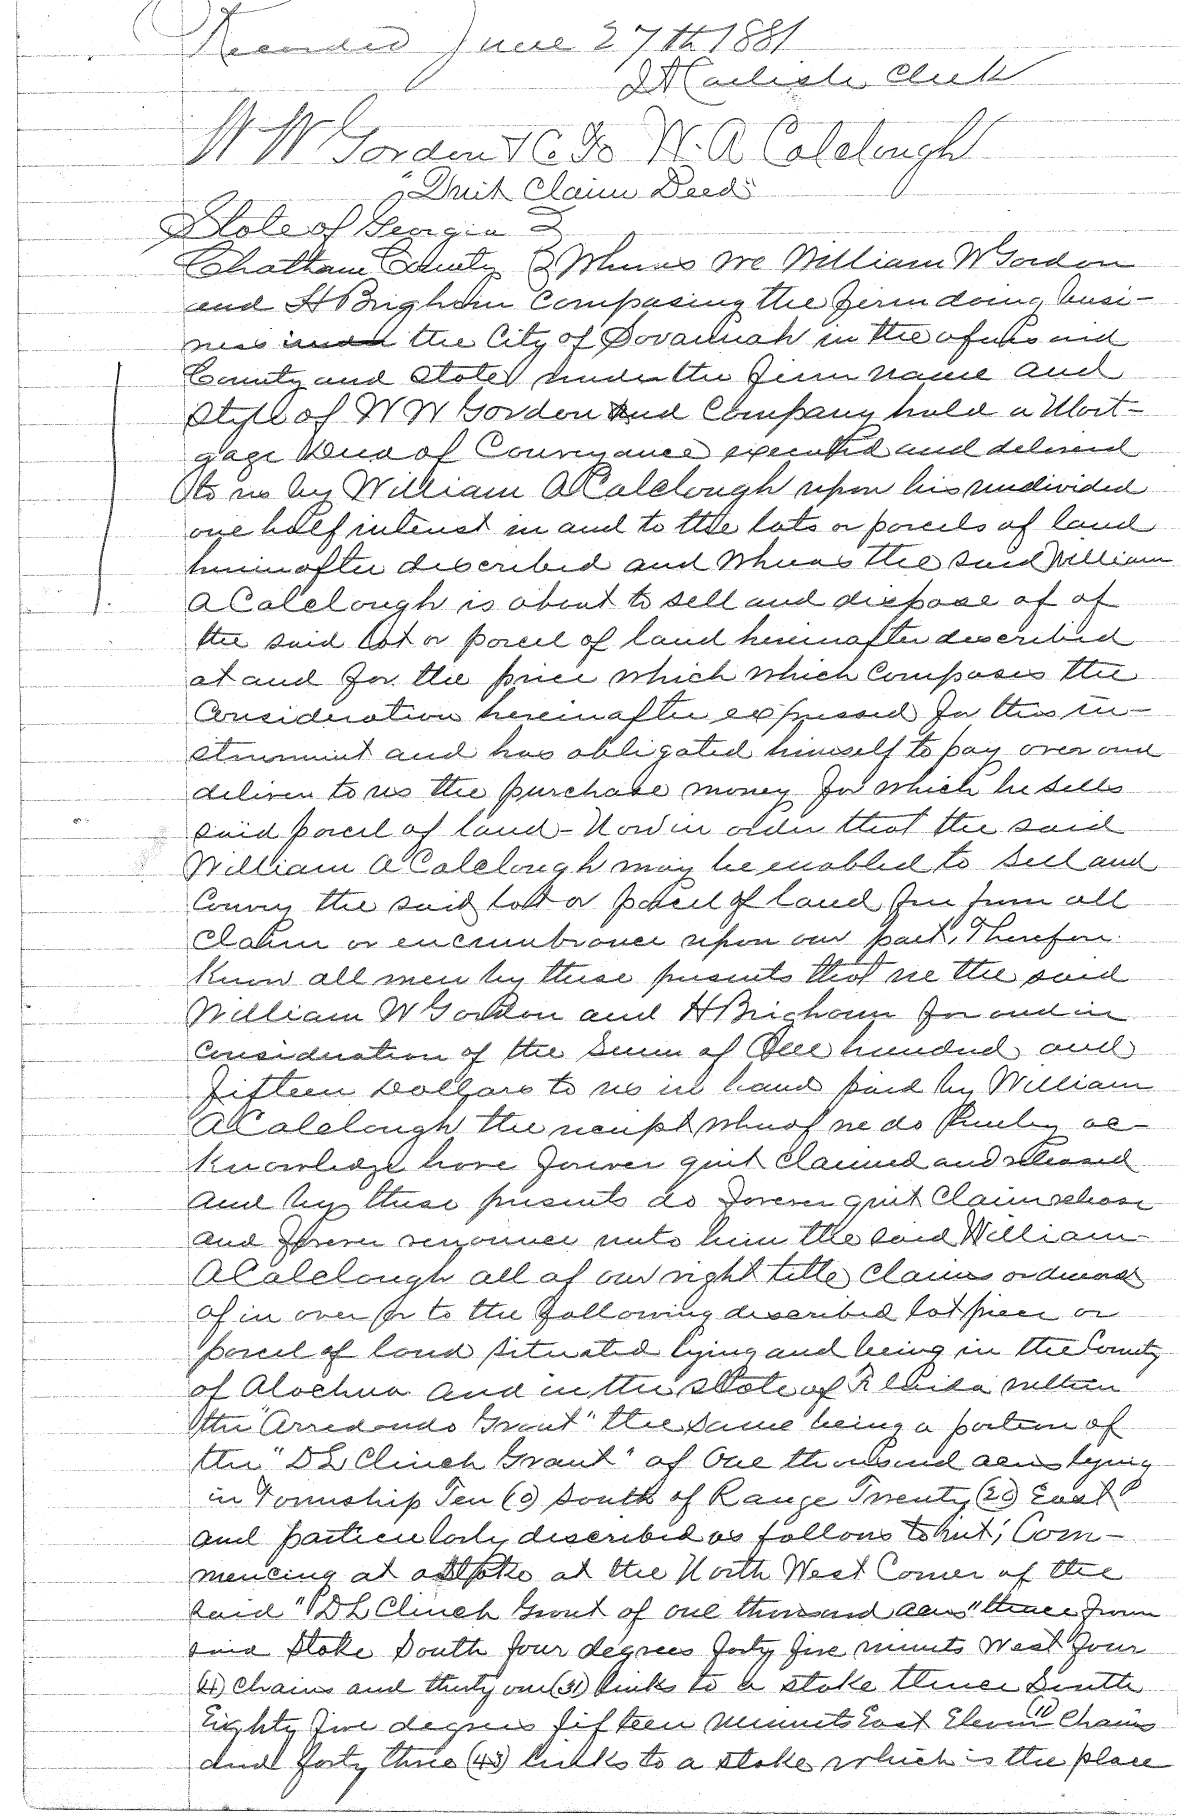 Recorded June 27th 1881
J A Carlisle Clerk
W W Gordon & Co To W. A Colclough
"Quit Claim Deed"
State of Georgia
Chatham County Whereas we William W Gordon
and H Brigham Composing the firm doing busi-
ness the City of Savannah in the aforesaid
County and State under the firm name and
Style of W W Gordon and Company hold a Mort-
gage Deed of Conveyance executed and delivered
to us by William A Colclough upon his undivided
one half interest in and to the lots or parcels of land
hereinafter described and whereas the said William
A Colclough is about to sell and dispose of of
the said lot or parcel of land hereinafter described
at and for the price which which composes the
Consideration hereinafter expressed for this in-
strument and has obligated himself to pay over and
deliver to us the purchase money for which he sells
said parcel of land - Now in order that the said
William A Colclough may be enabled to sell and
Convey the said lot or parcel of land free from all
Claim or encumbrance upon our part, Therefore
Know all men by these presents that we the said
William W Gordon and H Brigham for and in
consideration of the Sum of One hundred and
fifteen Dollars to us in hand paid by William
A Colclough the receipt whereof we do hereby ac-
knowledge have forever quit claimed and released
and by these presents do forever quit Claim release
and forever renounce unto him the said William
A Colclough all of our right title claims or demand
of in over or to the following described lot piece or
parcel of land situated lying and being in the County
of Alachua and in the State of Florida within
the "Arredondo Grant" the same being a portion of
the "D L Clinch Grant" of One thousand acres lying
in Township Ten (0) South of Range Twenty (20) East
and particularly described as follows to wit; Com-
mencing at a Stake at the North West Corner of the
said "D L Clinch Grant of one thousand acres" thence from
said Stake South four degrees forty five minuts West four
(4) Chains and thirty one (31) links to a stake thence South
Eighty five degrees fifteen minuts East Eleven (11) Chains
and forty three (43) links to a stake which is the place